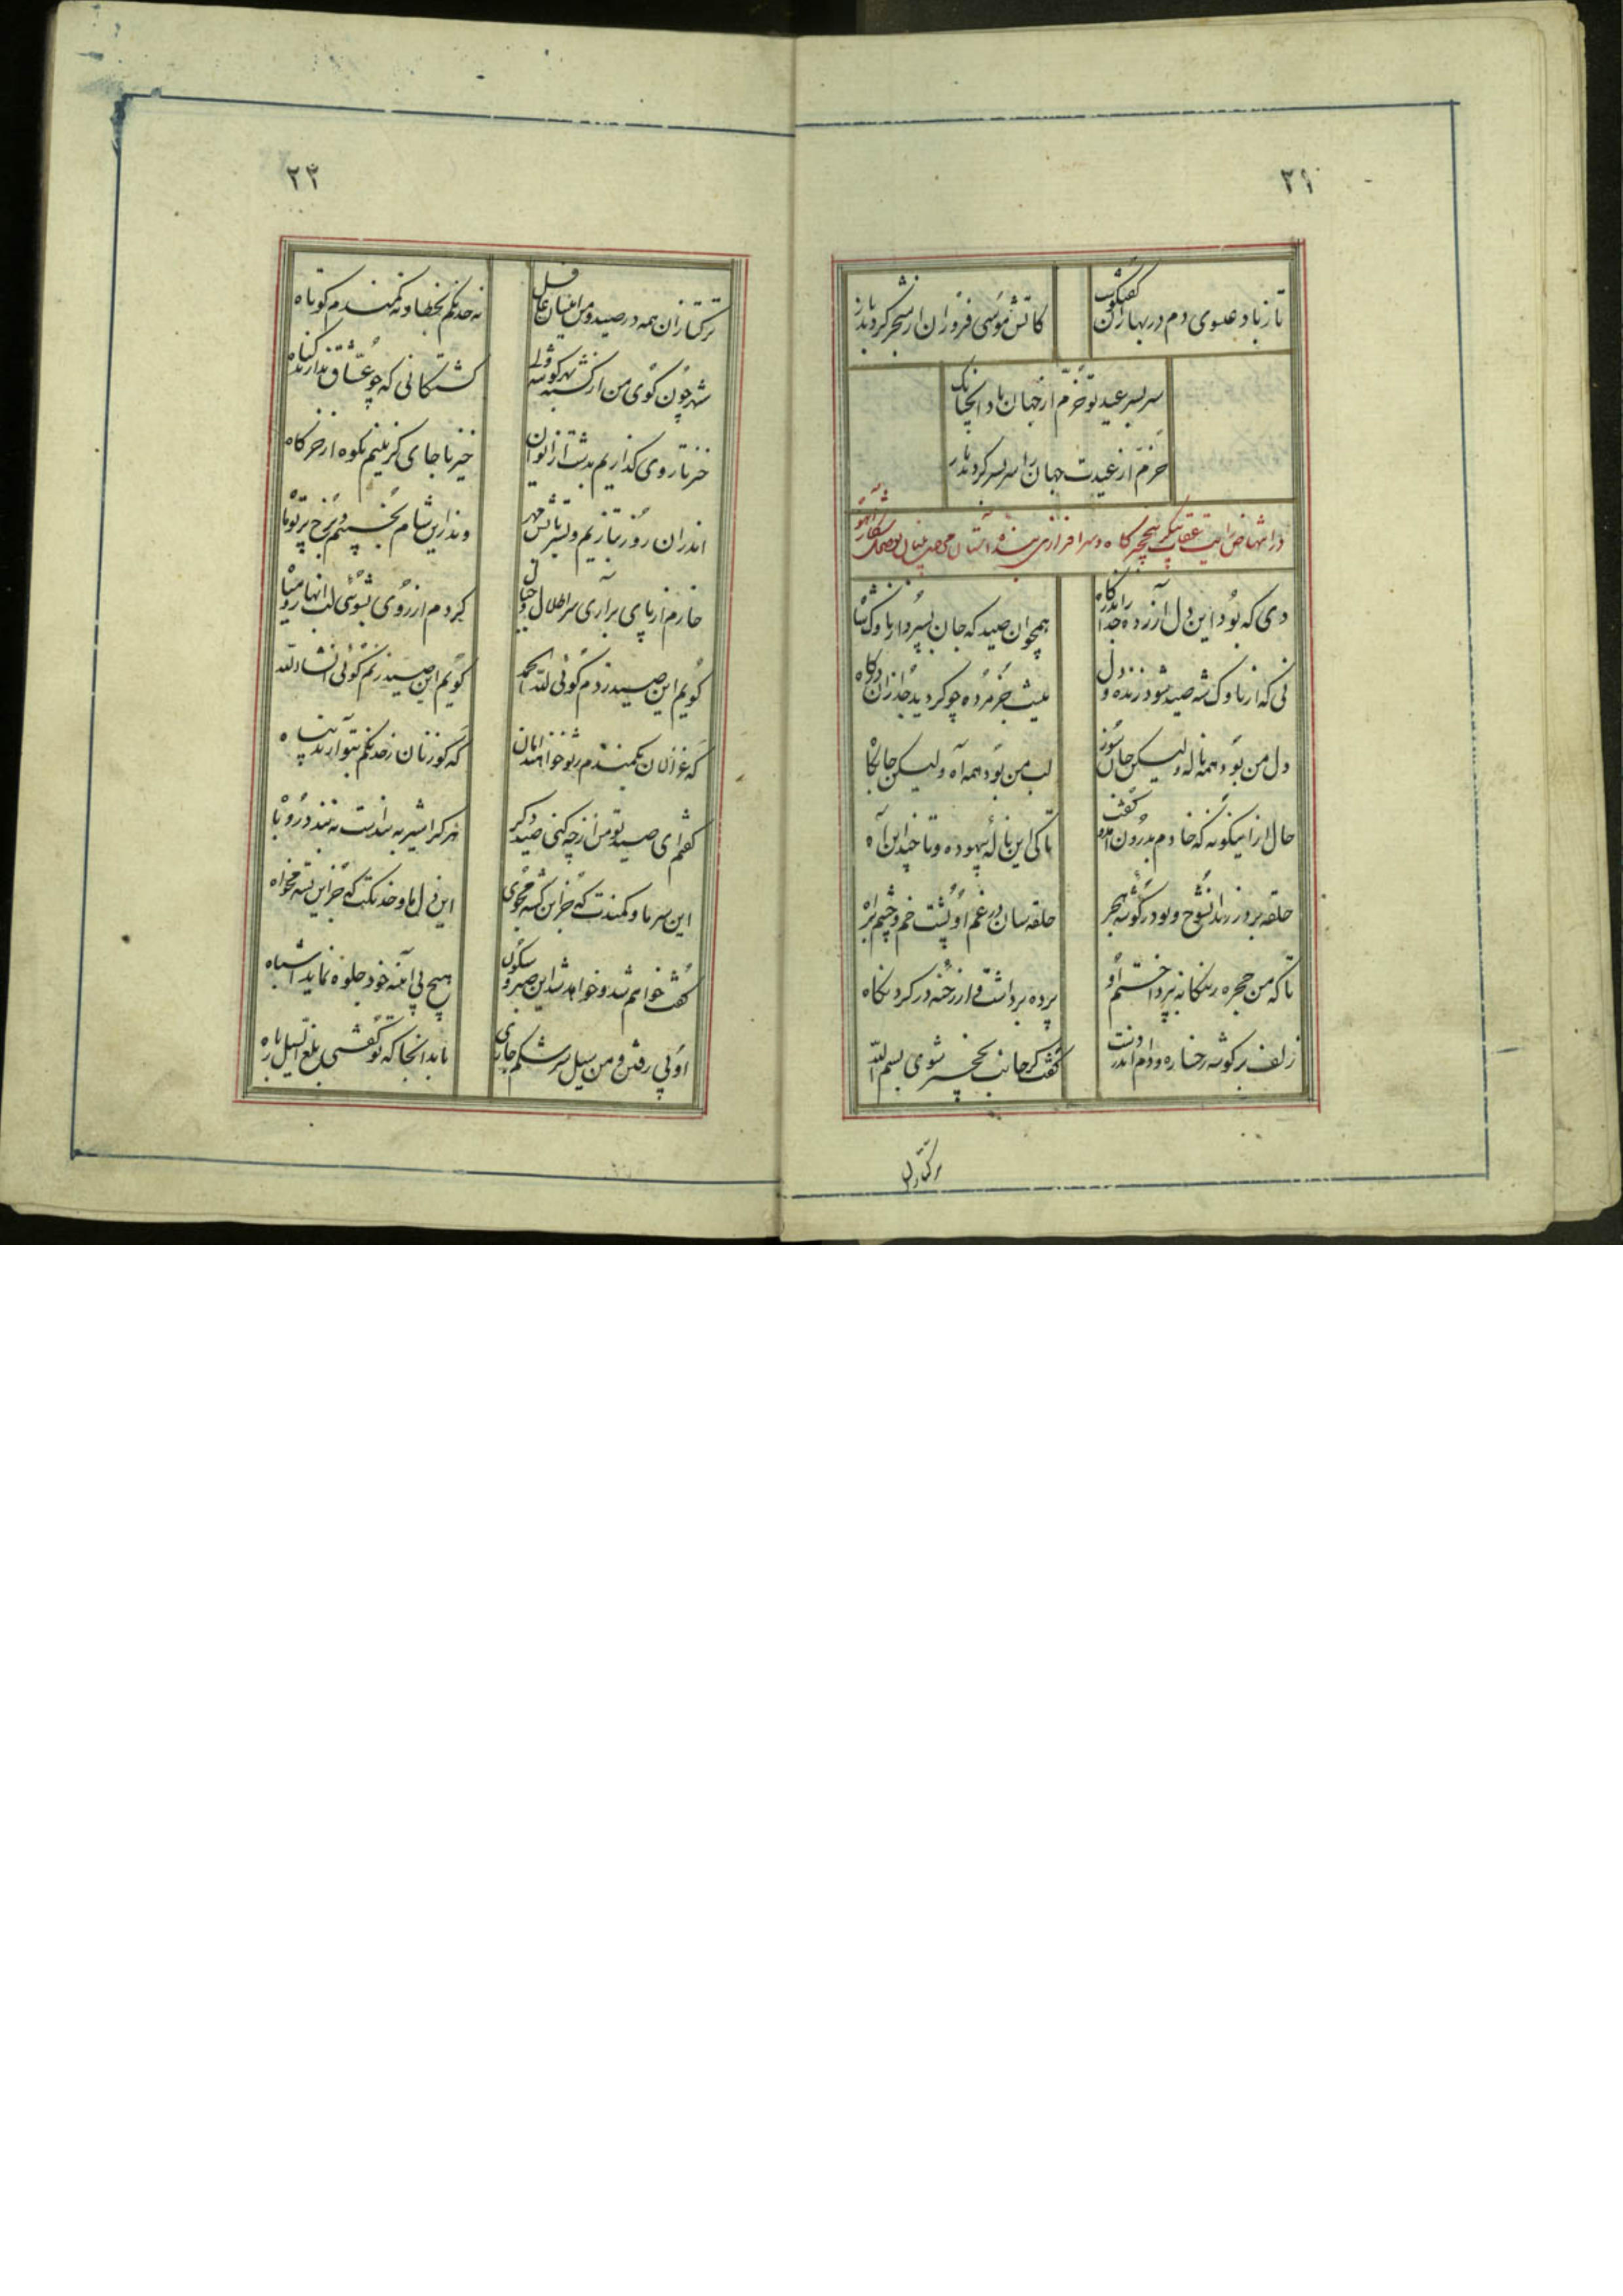 ۲۱
تا ز باد عیسوی دم در بهاران گفتگوست
کاتش موسی فروزان از شجر گردید باز
سربسر عید تو خرم از جهان باد آنچنانک
خرم از عیدت جهان را سربسر گردید باز
در انتهاض رایت عقاب پیکر بنخچیرگاه و سرافرازی
دی که بود این دل آزرده جدا زان درگاه
همچو آن صید که جان بسپرد از ناوک شاه
نی که از ناوک شه صید شود زنده و دل
نیست جز مرده چو گردید جدا زان درگاه
دل من بود همه ناله ولیکن جان سوز
لب من بود همه آه ولیکن جانکاه
حال از اینگونه که خادم بدرون آمد و گفت
تا کی این نالهٔ بیهوده و تا چند این آه
حلقه بر در زند آن شوخ و بود در گوشه حجر
حلقه سان در غم او پشت خم و چشم براه
تا که من حجره ز بیگانه بپرداختم او
پرده برداشت و از رخنه در کرد نگاه
زلف بر گوشه رخساره و دام اندر دست
گفت گر جانب نخچیر شوی بسم الله
ترکتازان
۲۲
ترکتازان همه در صید و من اینسان غافل
نه خدنگم بخطا و نه کمندم کوتاه
شهر چون کوی من از کشته
کشتگانی که چو عشاق ندارند گناه
خیز تا روی گذاریم بدشت از ایوان
خیز تا جای گزینیم بکوه از خرگاه
اندر آن روز بتازیم و بتر تابش مهر
وندر این شام بخسبیم و برخ پرتو ماه
خارم از پای برآری سر اطلال و جبال
گردم از روی بشویی لب انهار و میاه
گویم این صید زدم گوئی لله الحمد
گویم این صید زنم گوئی انشاءالله
که غزالان بکمندم ز تو خواهند امان
که گوزنان ز خدنگم بتو آرند پناه
گفتم ای صید تو من از چه کنی صید دگر
هر کرا شیر به بند است نه بندد روباه
این سر ما و کمندت که جز این کشته مجوی
این دل ما و خدنگت که جز این بسته مخواه
گفت خواهم شد و خواهد شد این صبر و سکون
هیچ بی آینه خود جلوه نماید اشباه
او پی رفتن و من سیل سرشکم جاری
تا بدانجا که تو گفتی بلغ السیل زباه